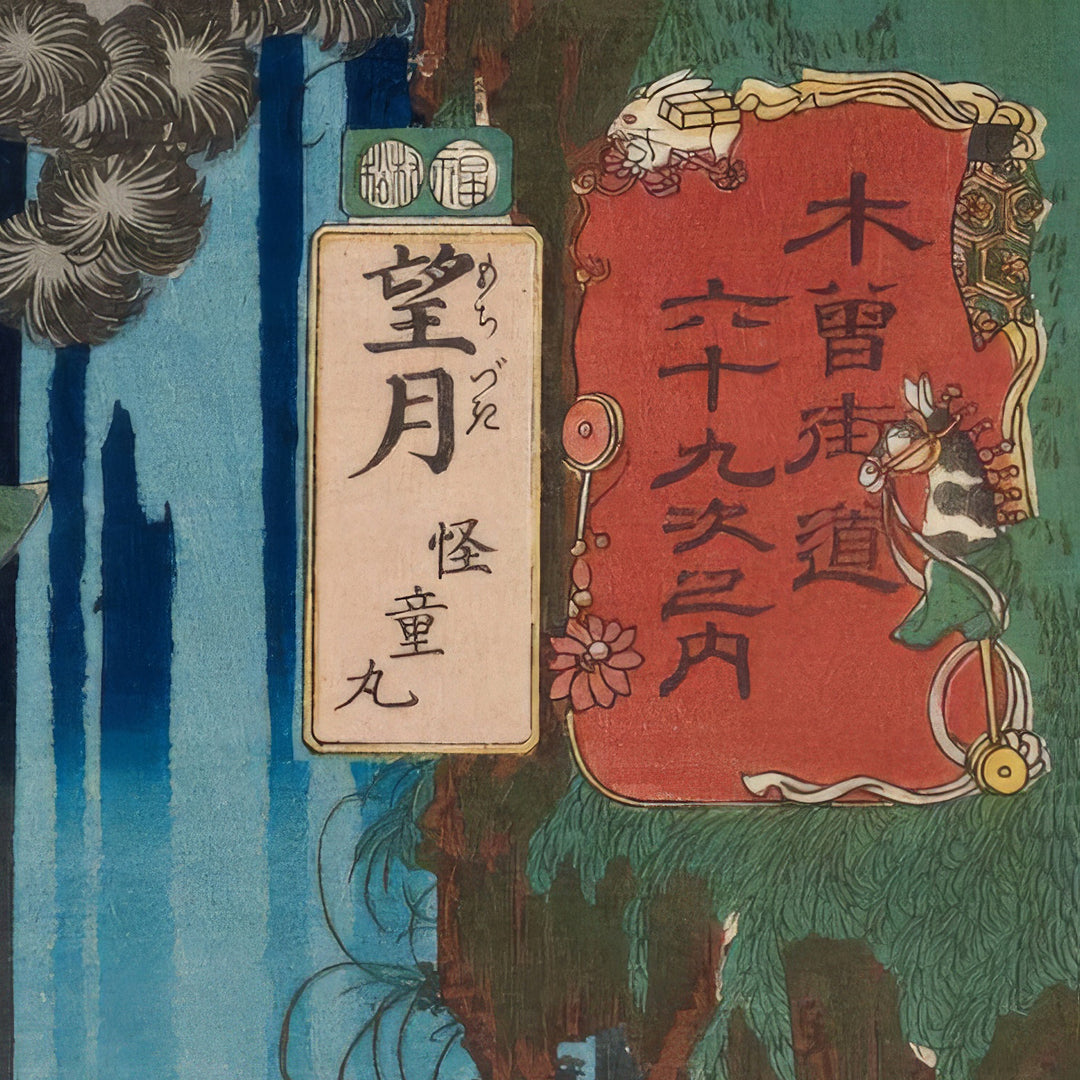 木曾街道
六十九次之内
福
望月
もちづき
怪童丸